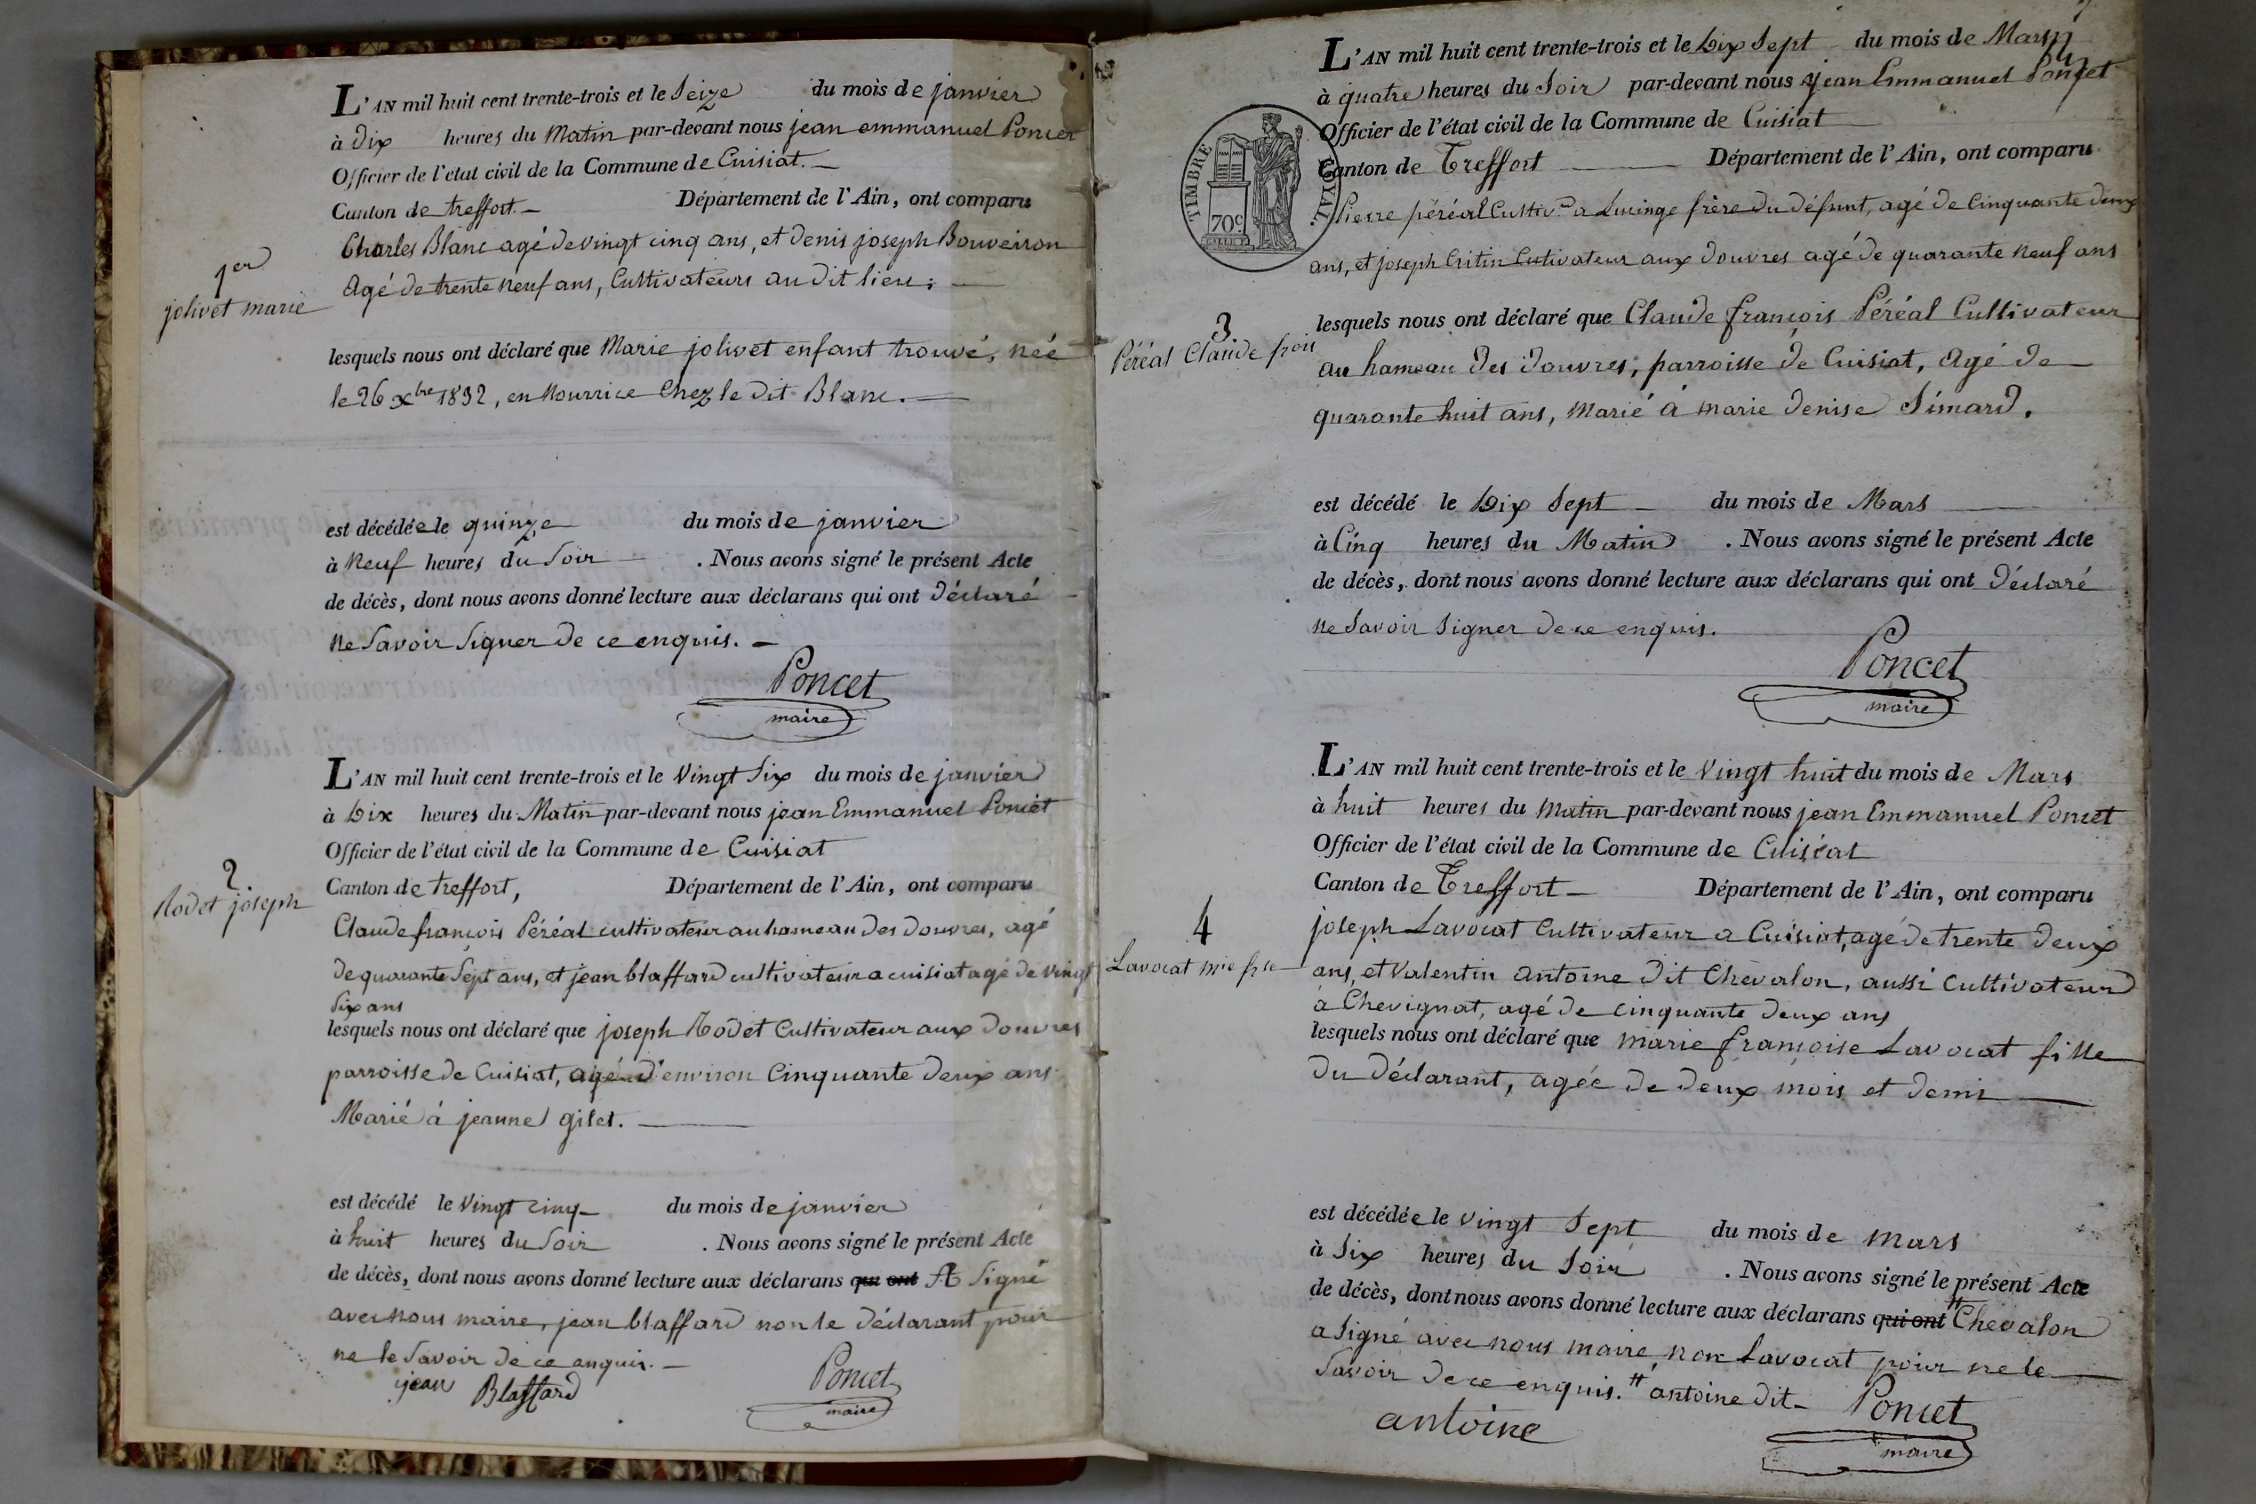 L'AN mil huit cent trente-trois et le Seize du mois de janvier
à dix heures du Matin par-devant nous jean emmanuel Poncet
Officier de l'état civil de la Commune de Cuisiat.
Canton de treffort. Département de l'Ain, ont comparu
Charles Blanc agé de vingt cinq ans, et denis joseph Bouveiron
Agé de trente neuf ans, Cultivateurs au dit lieu;
1er
jolivet marie
lesquels nous ont déclaré que Marie jolivet enfant trouvé, née
le 26 xbre 1832, en Nourrice Chez le dit Blanc.
est décédée le quinze du mois de janvier
à Neuf heures du Soir . Nous avons signé le présent Acte
de décès, dont nous avons donné lecture aux déclarans qui ont déclaré
ne Savoir Signer de ce enquis.
Poncet
maire
L'AN mil huit cent trente-trois et le Vingt Six du mois de janvier
à Dix heures du Matin par-devant nous jean Emmanuel Poncet
Officier de l'état civil de la Commune de Cuisiat
Canton de treffort, Département de l'Ain, ont comparu
2
Rodet joseph
Claude françois Péréal cultivateur au hameau des douvres, agé
de quarante Sept ans, et jean blaffard cultivateur a cuisiat agé de vingt
Six ans
lesquels nous ont déclaré que joseph Rodet Cultivateur aux douvres
parroisse de Cuisiat, agé d'environ Cinquante deux ans
Marié à jeanne gilet.
est décédé le Vingt cinq du mois de janvier
à huit heures du Soir . Nous avons signé le présent Acte
de décès, dont nous avons donné lecture aux déclarans qui ont A Signé
avec nous maire, jean blaffard non le déclarant pour
ne le Savoir de ce enquis.
jean Blaffard
Poncet
maire
L'AN mil huit cent trente-trois et le Dix Sept du mois de Mars
à quatre heures du Soir par-devant nous jean Emmanuel Poncet
Officier de l'état civil de la Commune de Cuisiat
Canton de Treffort Département de l'Ain, ont comparu
TIMBRE ROYAL.
70c
Pierre péréal Cultiv.r a Lucinge frère du défunt, agé de Cinquante deux
ans, et joseph Critin Cutivateur aux douvres agé de quarante neuf ans
3
Péréal Claude fçois
lesquels nous ont déclaré que Claude françois Péréal Cultivateur
au hameau des douvres, parroisse de Cuisiat, Agé de
quarante huit ans, Marié à marie denise Simard.
est décédé le Dix Sept du mois de Mars
à Cinq heures du Matin . Nous avons signé le présent Acte
de décès, dont nous avons donné lecture aux déclarans qui ont déclaré
ne Savoir Signer de ce enquis.
Poncet
maire
L'AN mil huit cent trente-trois et le Vingt huit du mois de Mars
à huit heures du Matin par-devant nous jean Emmanuel Poncet
Officier de l'état civil de la Commune de Cuisiat
Canton de Treffort Département de l'Ain, ont comparu
4
Lavocat mie fse
joseph Lavocat Cultivateur a Cuisiat, agé de trente deux
ans, et Valentin antoine dit Chevalon, aussi Cultivateur
à Chevignat, agé de cinquante deux ans
lesquels nous ont déclaré que marie françoise Lavocat fille
du déclarant, agée de deux mois et demi
est décédée le Vingt Sept du mois de mars
à Six heures du Soir . Nous avons signé le présent Acte
de décès, dont nous avons donné lecture aux déclarans qui ont # Chevalon
a Signé avec nous maire, non Lavocat pour ne le
Savoir de ce enquis. # antoine dit
antoine
Poncet
maire